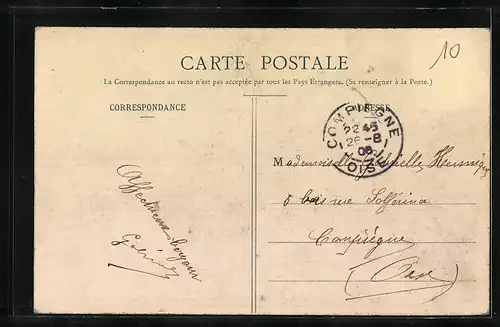 10
CARTE POSTALE
La Correspondance au recto n'est pas acceptée par tous les Pays Étrangers. (Se renseigner à la Poste.)
CORRESPONDANCE
ADRESSE
COMPIEGNE
22 45
26 - 8
06
OISE
Mademoiselle
5 bis rue Solférino
Compiègne
(Oise)
Affectueux